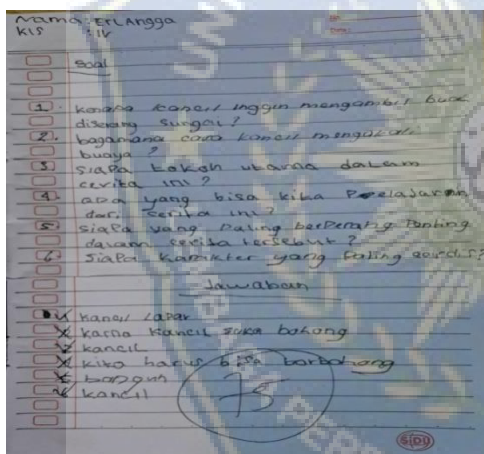 Nama : ErLAngga
KLS : IV
Soal
1. kenapa kancil inggin mengambil buah
disrang sungai?
2. bagamana cara kancil mengakali
buaya ?
3 siaPa tokoh utama daLam
cerita ini ?
4 apa yang bisa kita Pelajaran
dari serita ini?
5 siaPa yang Paling berPerang Penting
dalam serita tersebut ?
6. SiaPa karakter yang Paling
Jawaban
kancil Lapar
karna kancil suka bohong
kancil
kita harus bisa borbohong
kancil
75
SIDU